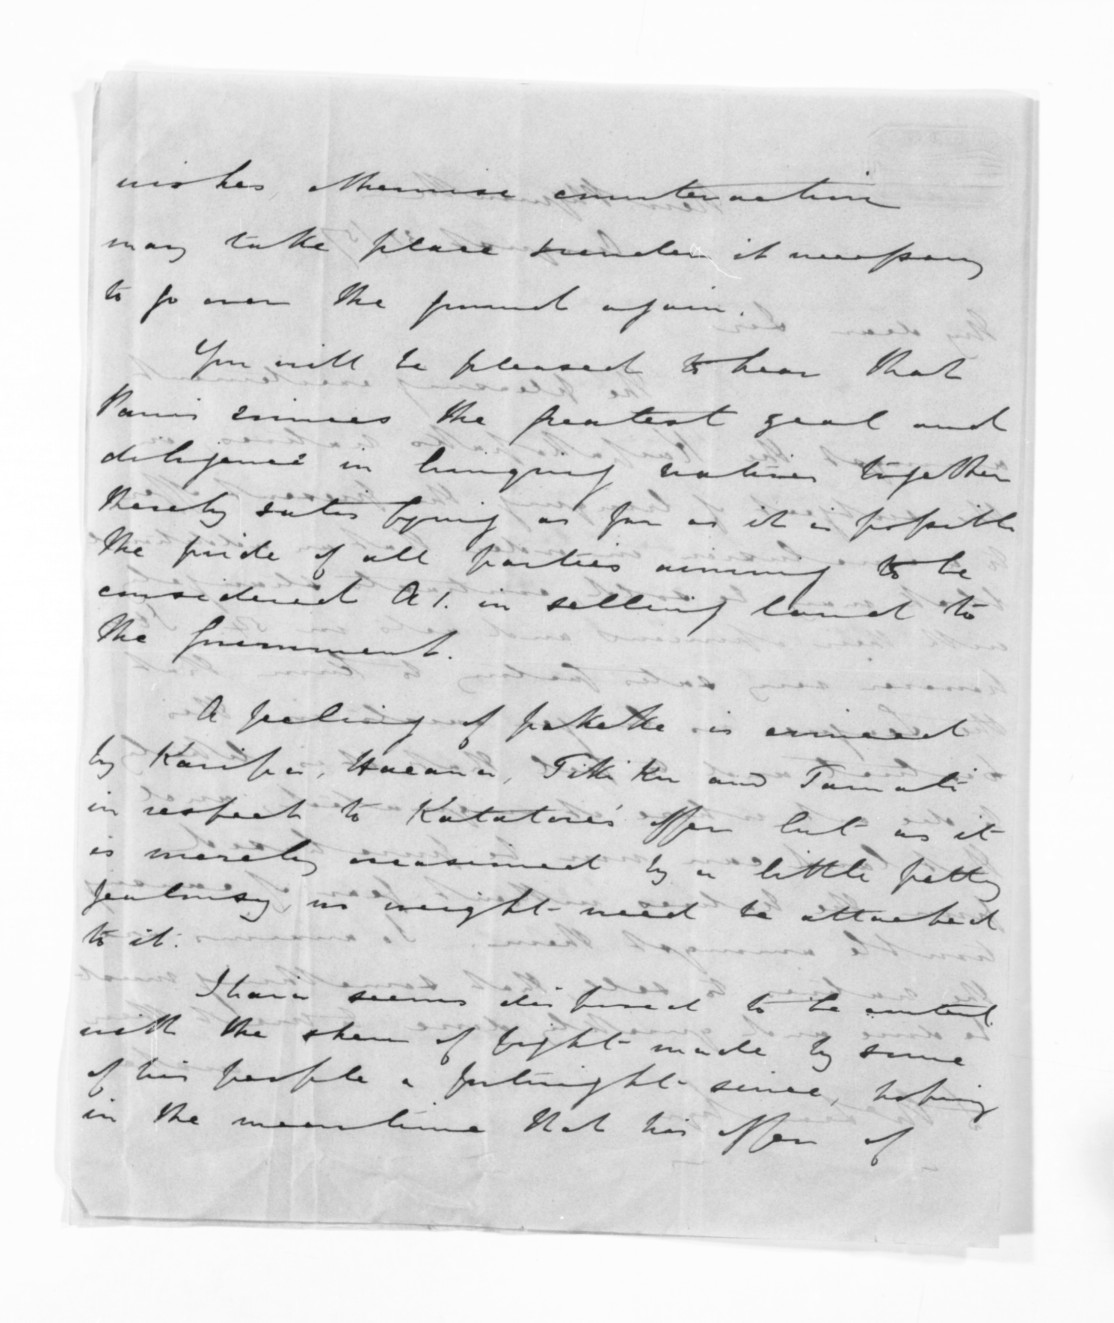 wishes, otherwise counteraction
may take place & render it necessary
to go over the ground again.
You will be pleased to hear that
Parris evinces the greatest zeal and
diligence in bringing natives together
thereby satisfying as far as it is possible
the pride of all parties aiming to be
considered A 1. in selling land to
the Government.
A feeling of pakeke is evinced
by Karipa, Haeana, Tikiku and Tamati
in respect to Katatore's offer but as it
is merely occasioned by a little petty
jealousy, no weight need be attached
to it.
Ihaia seems disposed to be content
with the show of fight made by some
of his people a fortnight since, hoping
in the meantime that his offer of